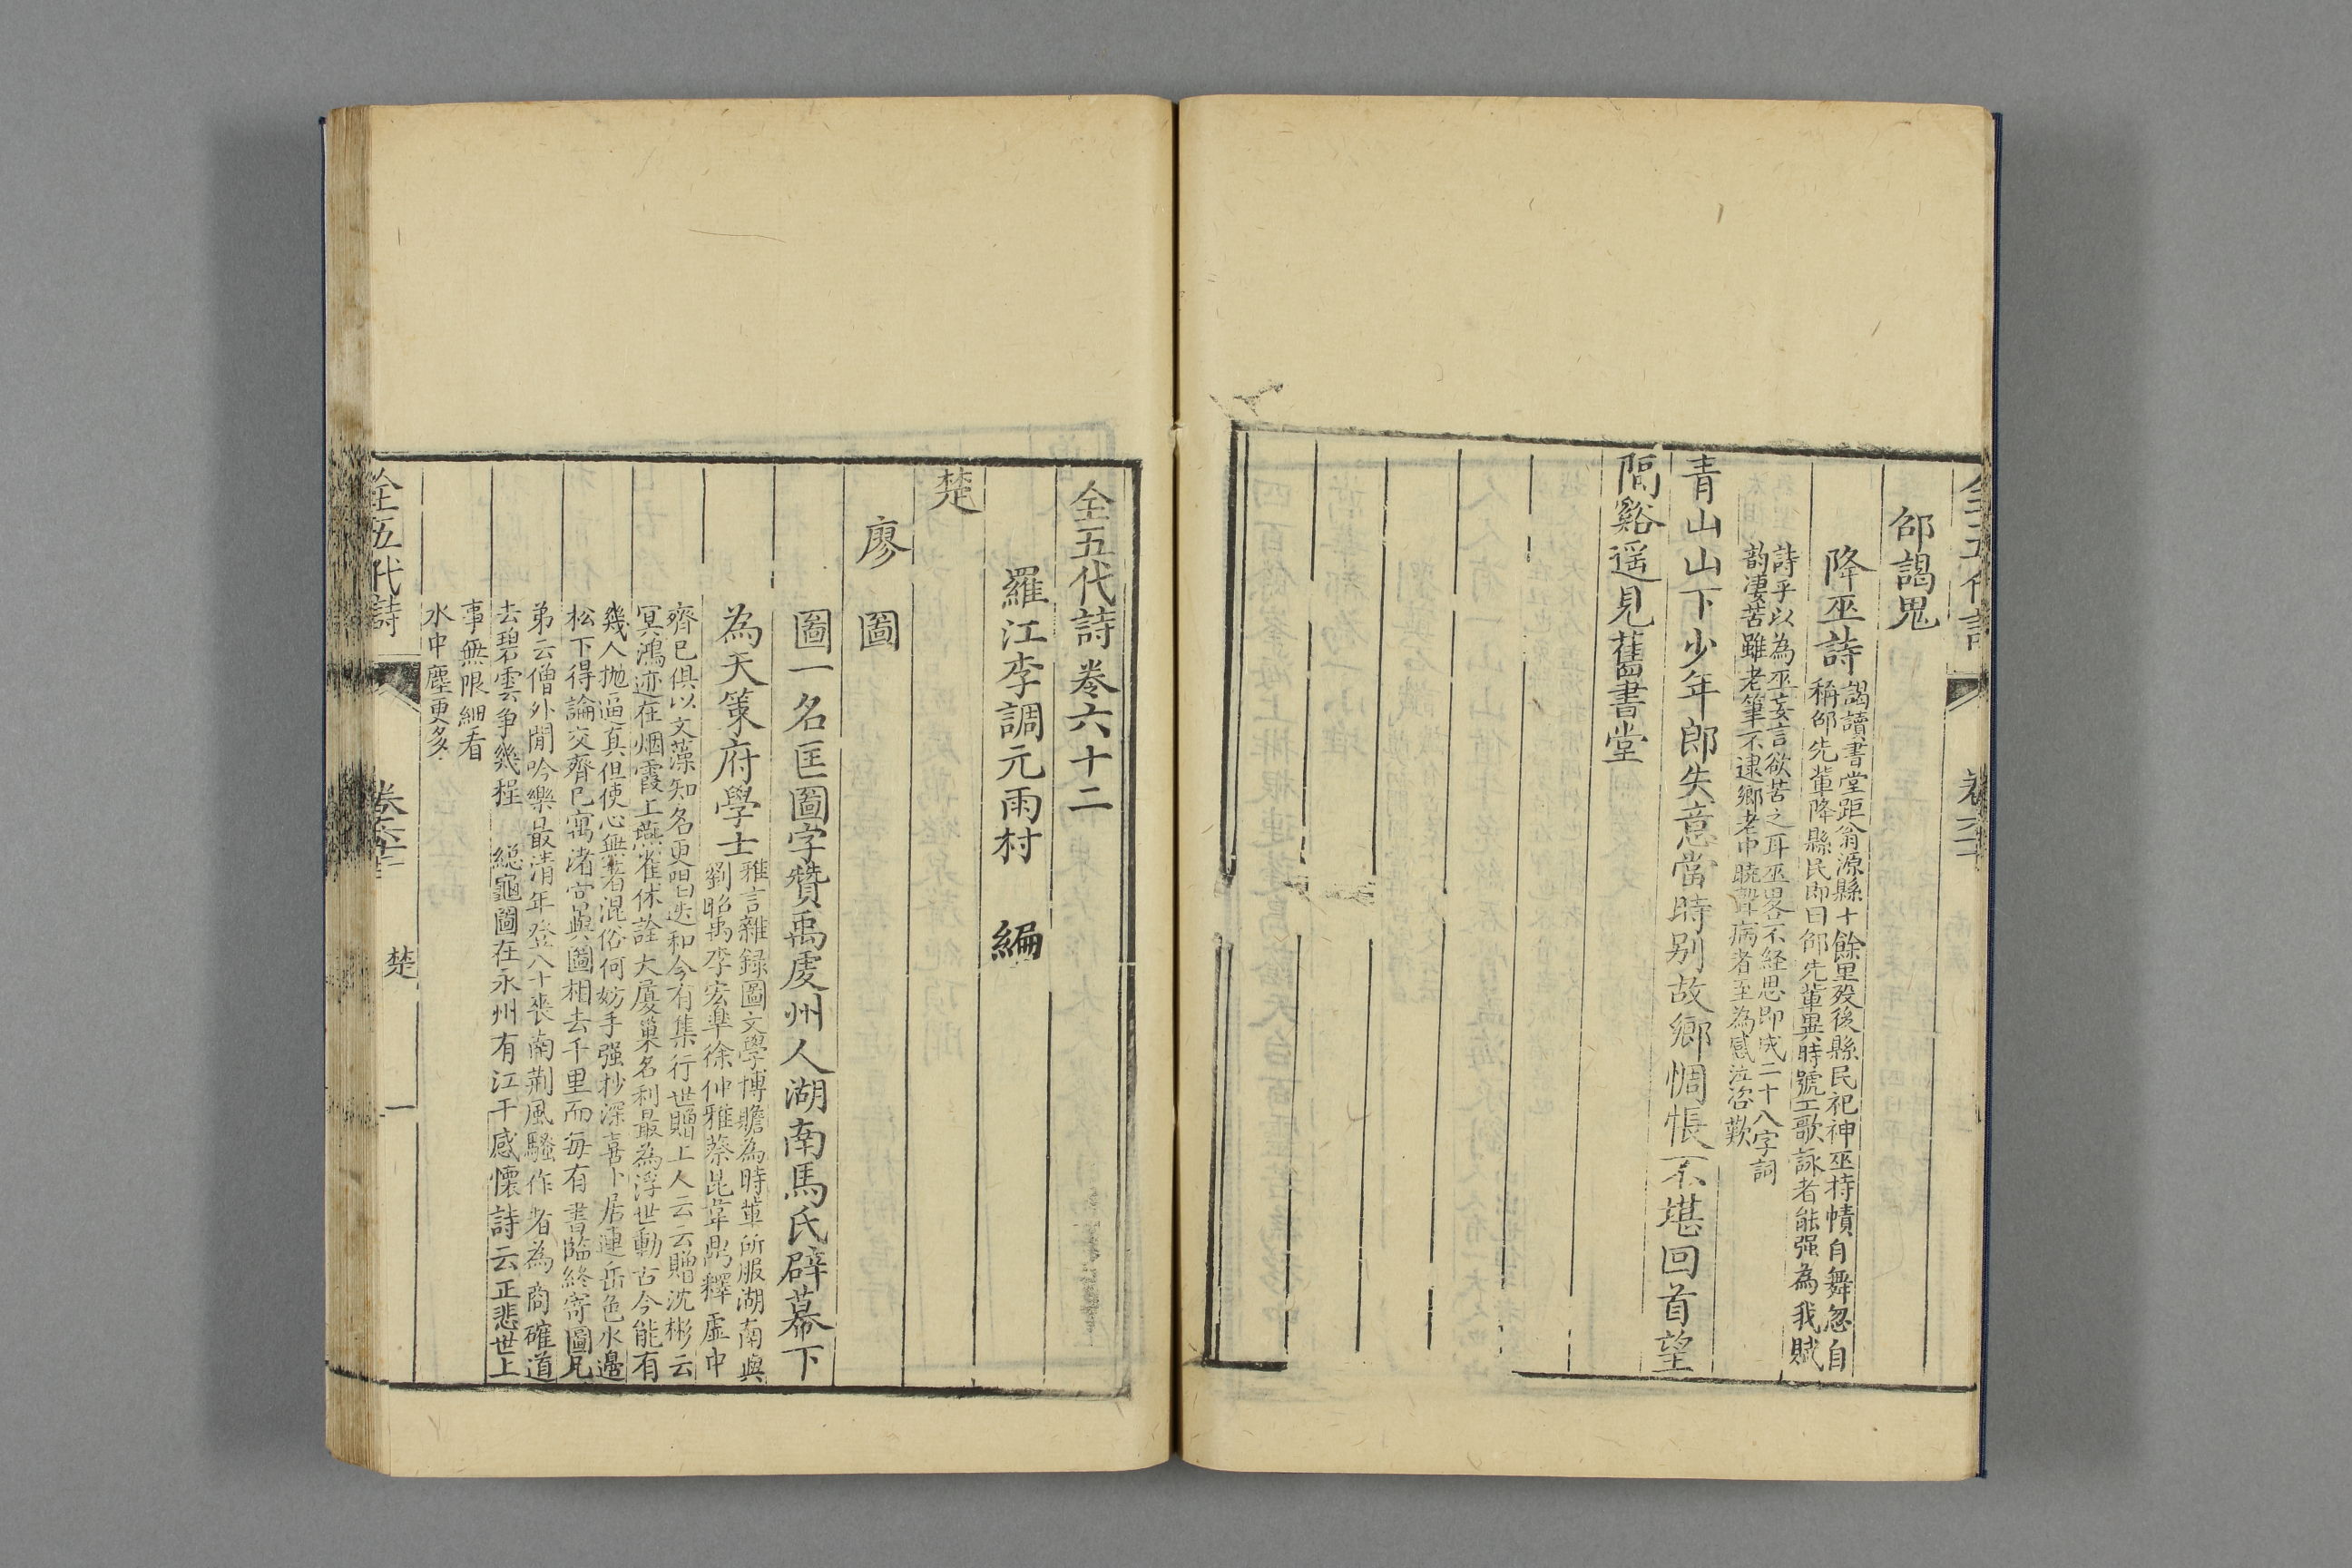 邵謁鬼
降巫詩
謁讀書堂距翁源縣十餘里歿後縣民祀神巫持幘自舞忽自
稱邵先輩降縣民即曰邵先輩異時號工歌詠者能强為我賦
詩乎以為巫妄言欲苦之耳巫畧不經思即成二十八字詞
韵凄苦雖老筆不逮鄉老中曉聲病者至為感泣咨歎
青山山下少年郎失意當時别故鄉惆悵不堪回首望
隔谿遥見舊書堂
全五代詩卷六十二
羅江李調元雨村 編
楚
廖 圖
圖一名匡圖字贊禹虔州人湖南馬氏辟幕下
為天策府學士
雅言雜録圖文學博贍為時軰所服湖南與
劉昭禹李宏臯徐仲雅蔡昆韋鼎釋虚中
齊已俱以文藻知名更唱迭和今有集行世贈上人云云贈沈彬云
冥鴻迹在烟霞上燕雀休詮大厦巢名利最為浮世動古今能有
幾人抛逼真但使心無著混俗何妨手强抄深喜卜居連岳色水邊
松下得論交齊已寓渚宮與圖相去千里而每有書臨終寄圖兄
弟云僧外閒吟樂最清年登八十喪南荆風騷作者為商確道
去碧雲争幾程 總龜圖在永州有江干感懷詩云正悲世上
事無限細看
水中塵更多
全五代詩 卷六十二 楚 一